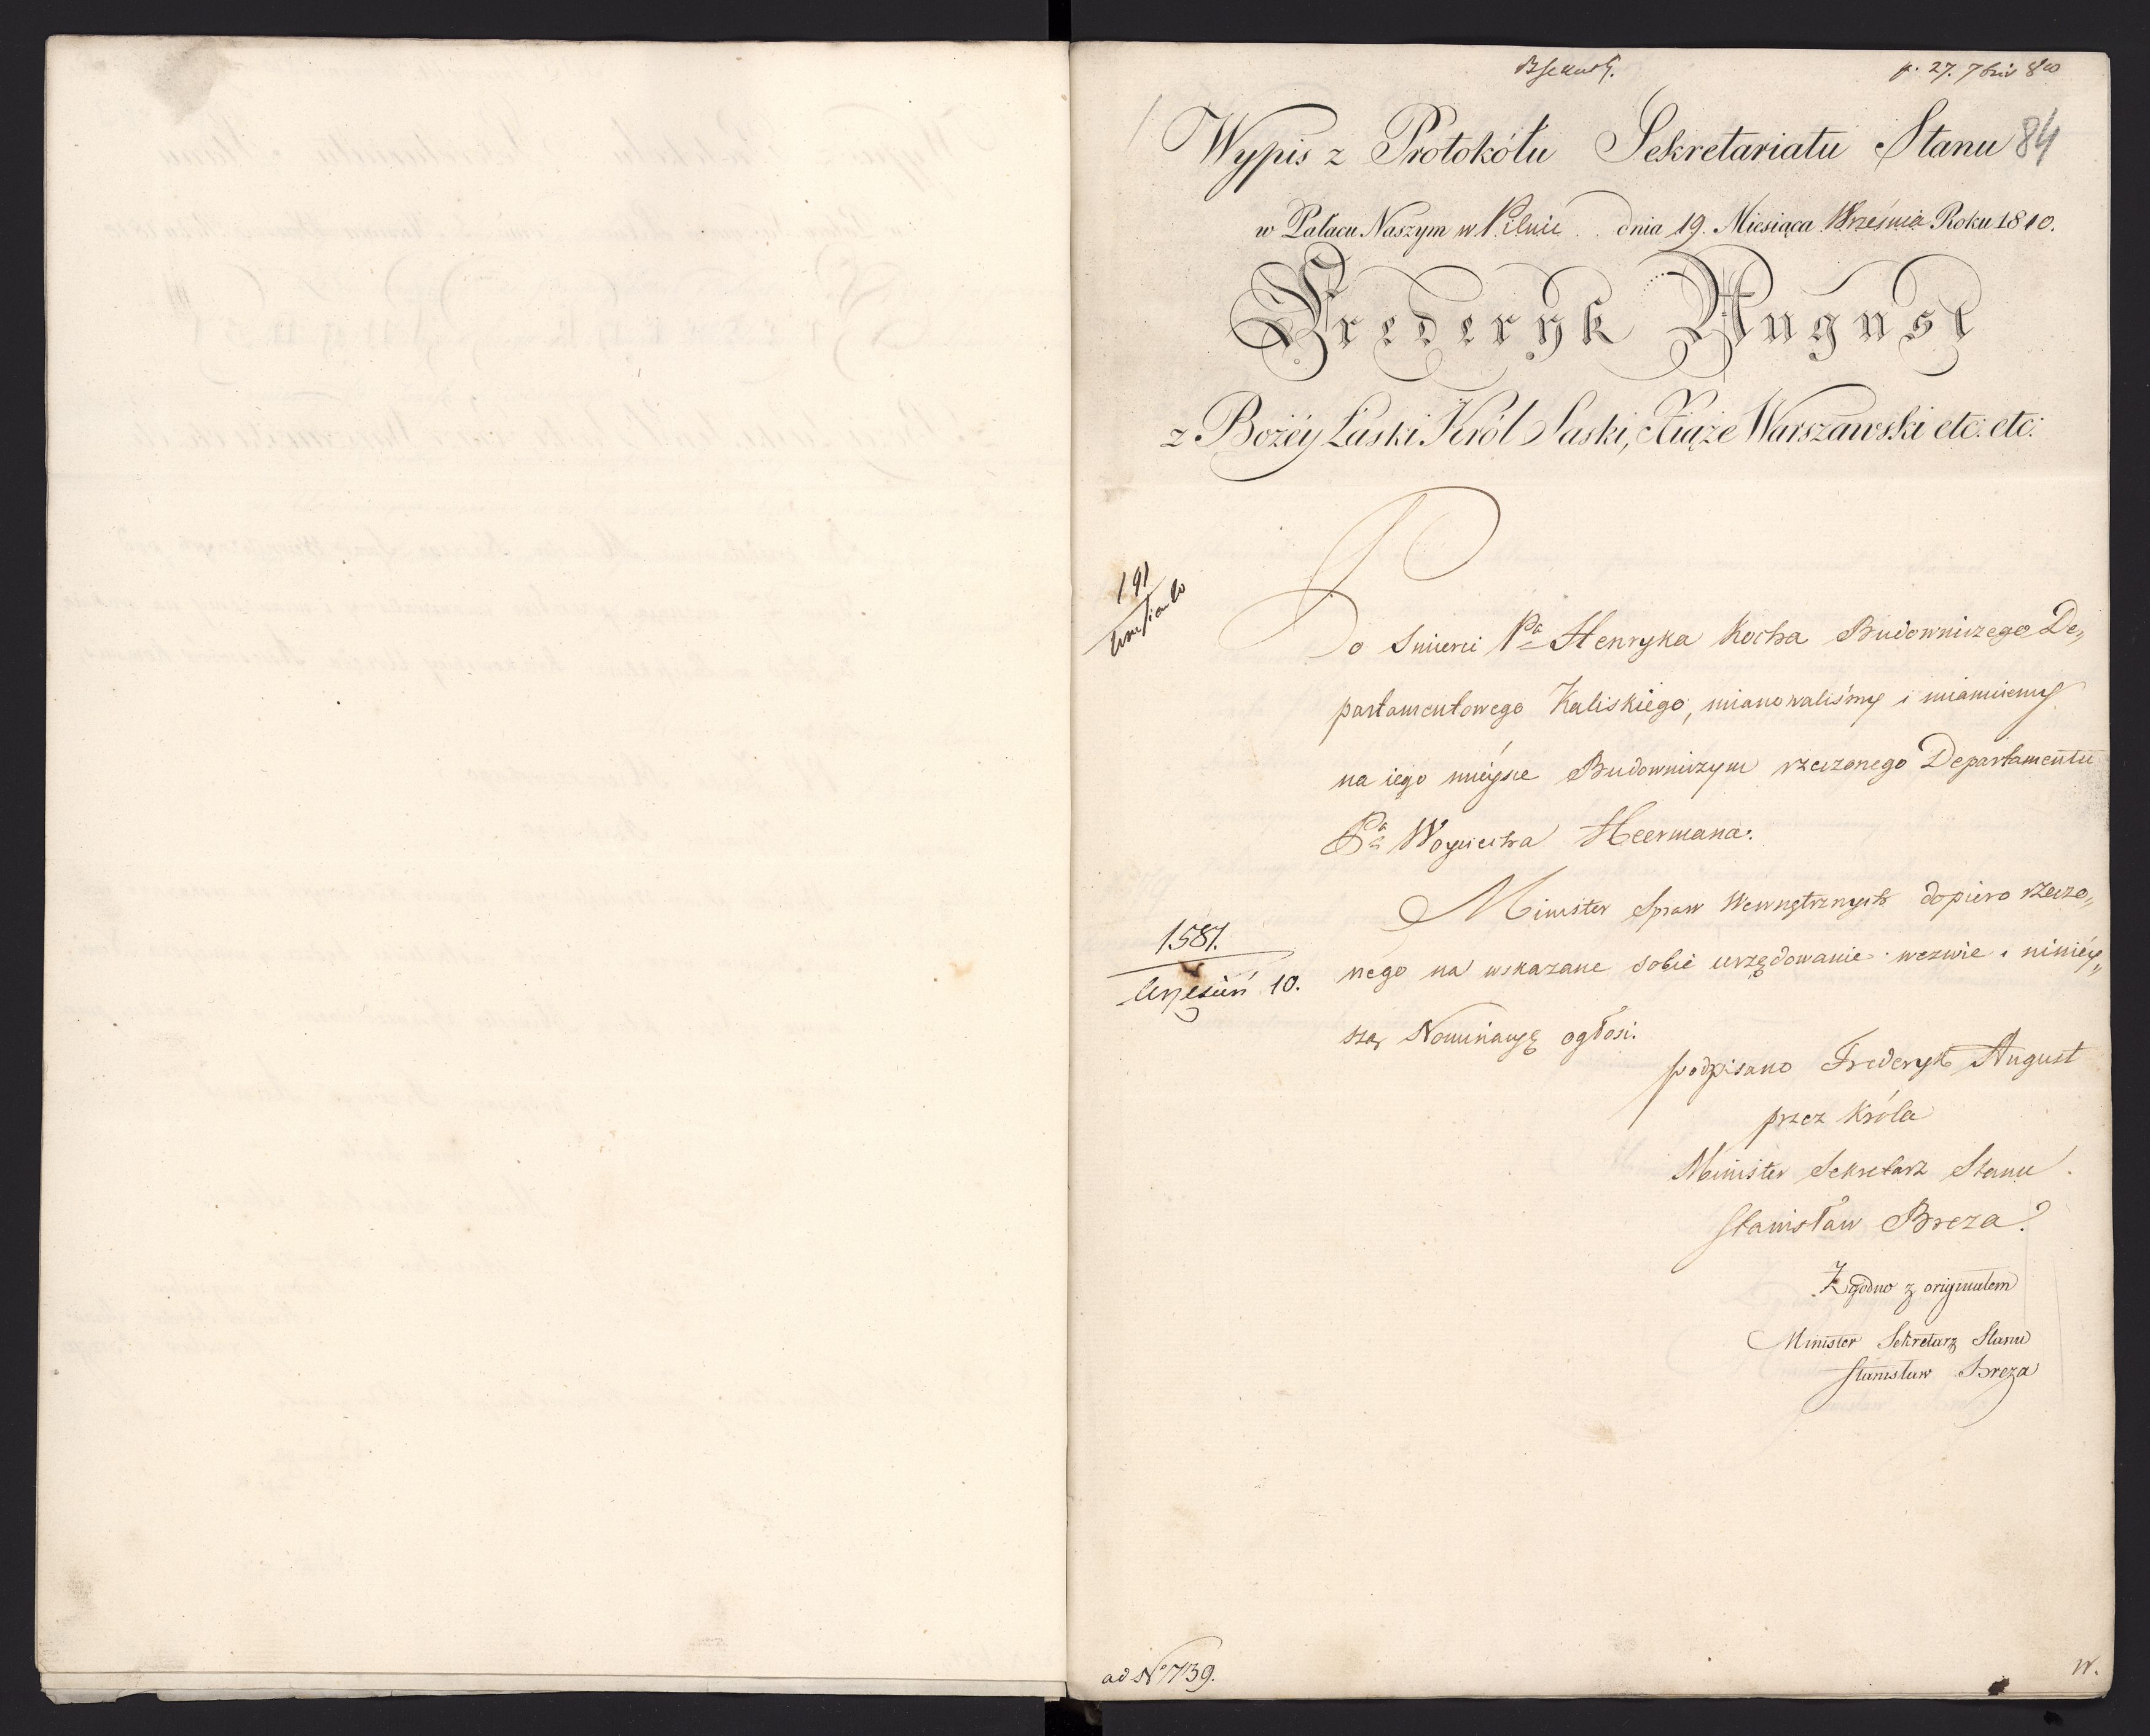 p. 27. 7briv 810
Wypis z Protokółu Sekretariatu Stanu 84
w Pałacu Naszym w Pilnic dnia 19. Miesiąca Września Roku 1810.
Frederyk August
z Bożéy Łaski Król Saski, Xiąże Warszawski etc: etc:
191
Po Smierci Pa Henryka Kocha Budowniczego De„
partamentowego Kaliskiego, mianowaliśmy i mianuiemy
na iego mieysce Budowniczym rzeczonego Departamentu
Pa Woyciecha Heermana.
Minister Spraw Wewnętrznych dopiero rzeczo„
1587.
nego na wskazane sobie urzędowanie wezwie i niniéy„
Wrzesień 10.
szą Nominacyę ogłosi.
podpisano Frederyk August
przez Króla
Minister Sekretarz Stanu
Stanisław Breza.
Zgodno z originałem
Minister Sekretarz Stanu
Stanisław Breza
ad No 1739.
W.